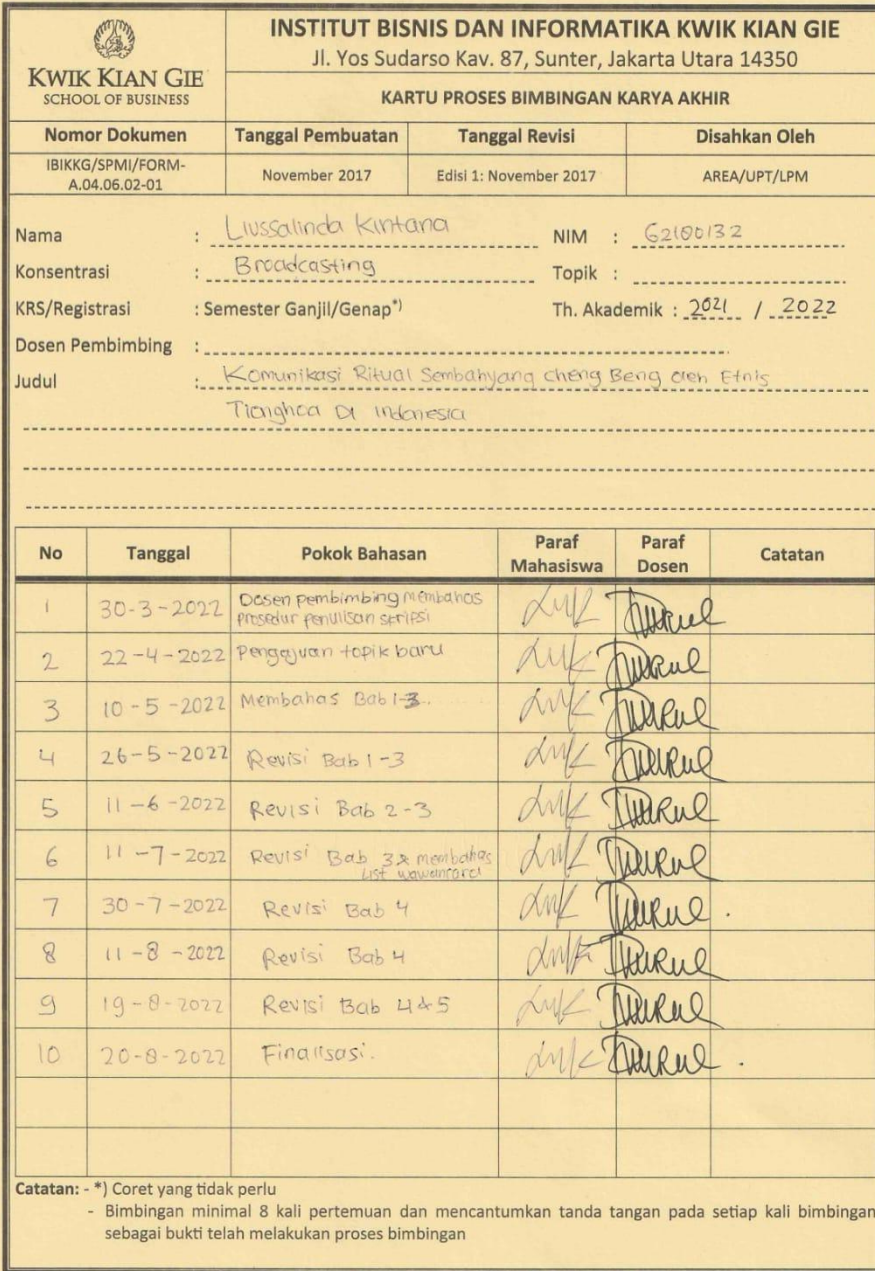 KWIK KIAN GIE
SCHOOL OF BUSINESS
INSTITUT BISNIS DAN INFORMATIKA KWIK KIAN GIE
Jl. Yos Sudarso Kav. 87, Sunter, Jakarta Utara 14350
KARTU PROSES BIMBINGAN KARYA AKHIR
Nomor Dokumen Tanggal Pembuatan Tanggal Revisi Disahkan Oleh
IBIKKG/SPMI/FORM-A.04.06.02-01 November 2017 Edisi 1: November 2017 AREA/UPT/LPM
Nama : Liussalinda Kintana NIM : 62180132
Konsentrasi : Broadcasting Topik :
KRS/Registrasi : Semester Ganjil/Genap*) Th. Akademik : 2021 / 2022
Dosen Pembimbing :
Judul : Komunikasi Ritual Sembahyang Cheng Beng oleh Etnis
Tionghoa Di Indonesia
No Tanggal Pokok Bahasan Paraf Mahasiswa Paraf Dosen Catatan
1 30-3-2022 Dosen pembimbing membahas prosedur penulisan skripsi
2 22-4-2022 Pengajuan topik baru
3 10-5-2022 Membahas Bab 1-3.
4 26-5-2022 Revisi Bab 1-3
5 11-6-2022 Revisi Bab 2-3
6 11-7-2022 Revisi Bab 3 & membahas List wawancara
7 30-7-2022 Revisi Bab 4
8 11-8-2022 Revisi Bab 4
9 19-8-2022 Revisi Bab 4&5
10 20-8-2022 Finalisasi.
Catatan: - *) Coret yang tidak perlu
- Bimbingan minimal 8 kali pertemuan dan mencantumkan tanda tangan pada setiap kali bimbingan
sebagai bukti telah melakukan proses bimbingan